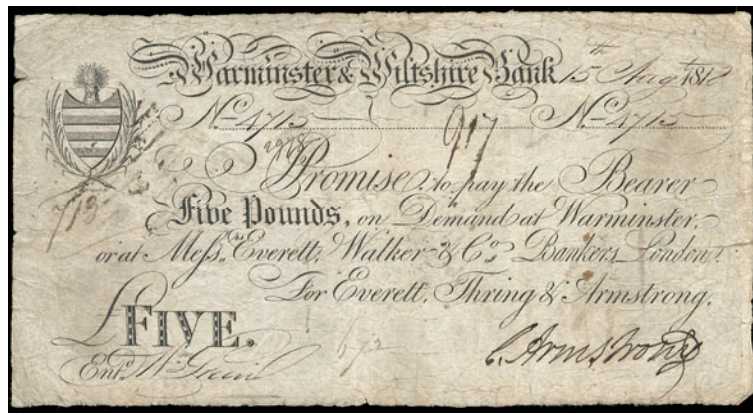 Warminster & Wiltshire Bank 15th Augt. 1818
No. 4715 No. 4715
917
2978
I Promise to pay the Bearer
713
Five Pounds, on Demand at Warminster,
or at Messrs. Everett, Walker & Co. Bankers London.
For Everett, Thring & Armstrong.
£FIVE.
672
Entd. Wm. C. Armstrong